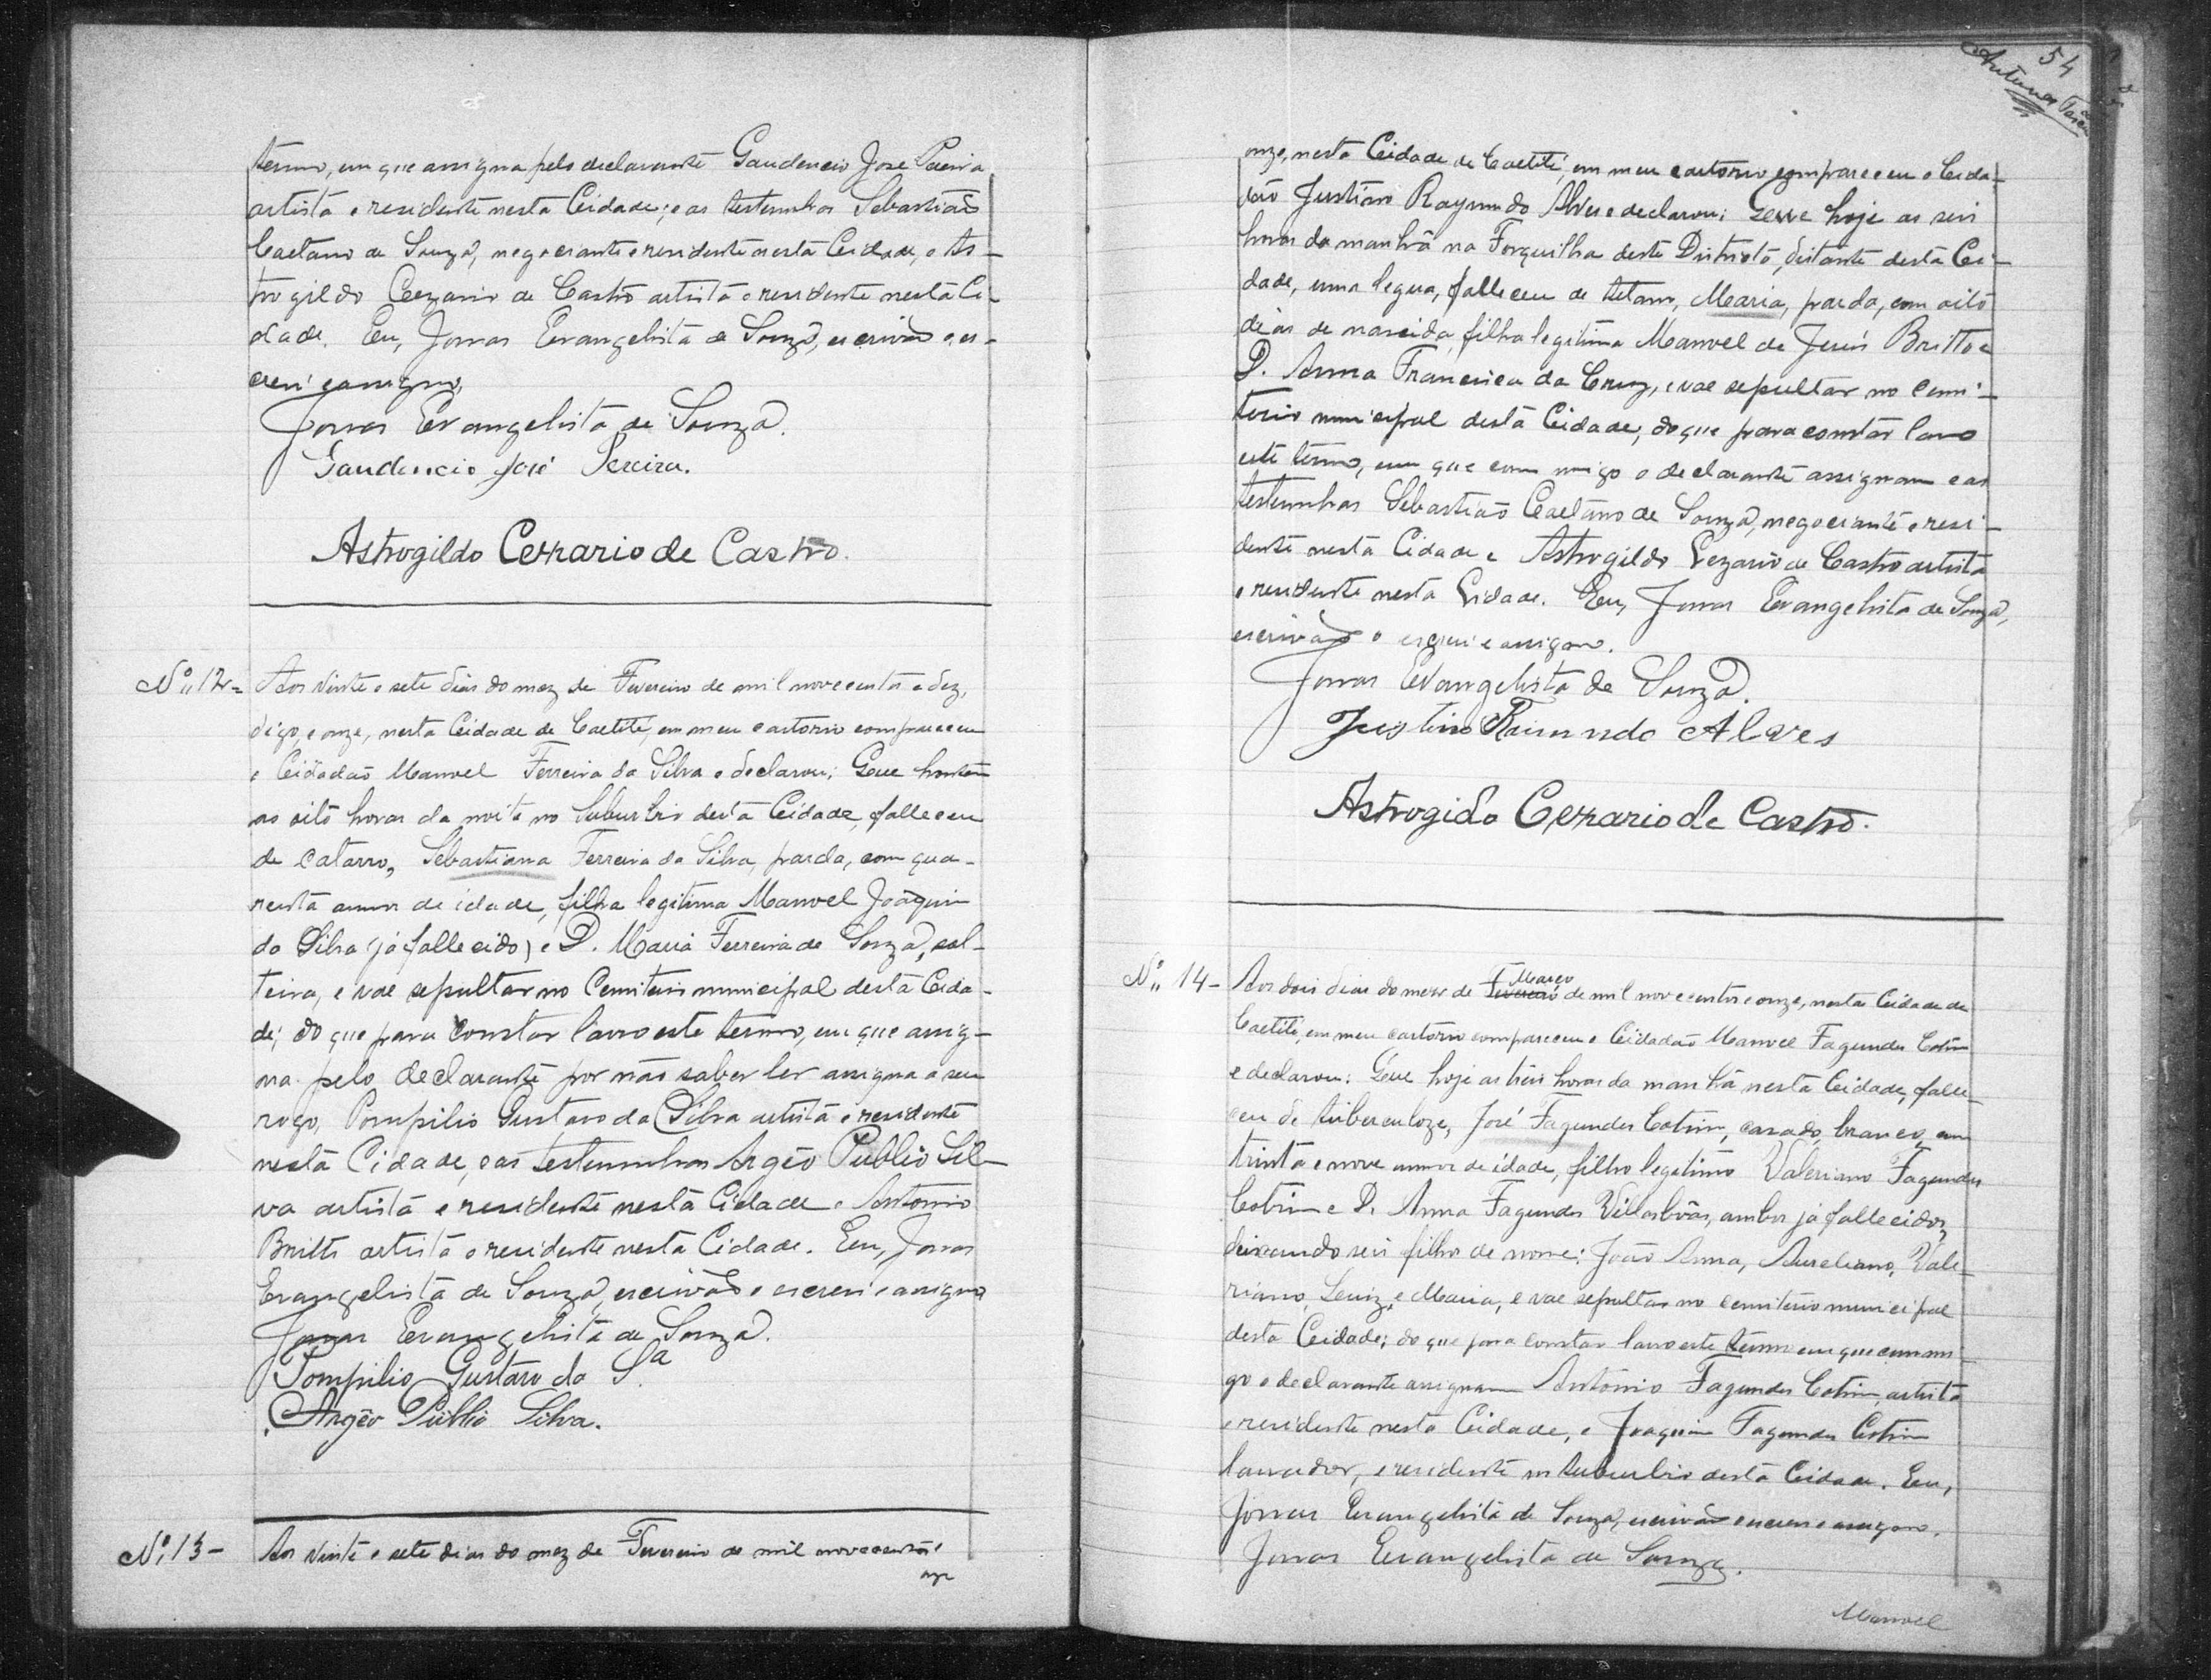 termo, em que assigna pelo declarante Gaudencio José Pereira
artista e residente nesta Cidade; e as testemunhas Sebastião
Caetano de Souza, negociante e residente nesta Cidade, e As-
trogildo Cezario de Castro artista e residente nesta Ci-
dade. Eu, Jonas Evangelista de Souza, escrivão o es-
crevi e assigno.
Jonas Evangelista de Souza.
Gaudencio José Pereira.
Astrogildo Cezario de Castro.
Nº 12- Aos vinte e sete dias do mez de Fevereiro de mil novecentos e dez,
digo, e onze, nesta Cidade de Caetité, em meu cartorio compareceu
o Cidadão Manoel Ferreira da Silva e declarou; Que hontem
as oito horas da noite no Suburbio desta Cidade, falleceu
de catarro, Sebastiana Ferreira da Silva, parda, com qua-
renta annos de idade, filha legitima Manoel Joaquim
da Silva (já fallecido) e D. Maria Ferreira de Souza, sol-
teira, e vae sepultar no Cemiterio municipal desta Cida-
de; do que para constar lavro este termo, em que assig-
na pelo declarante por não saber ler assigna a seu
rogo, Pompilio Gustavo da Silva artista e residente
nesta Cidade, e as testemunhas Argêo Publio Sil-
va artista e residente nesta Cidade e Antonio
Britto artista e residente nesta Cidade. Eu, Jonas
Evangelista de Souza, escrivão o escrevi e assigno
Jonas Evangelista de Souza.
Pompilio Gustavo da Sª
Argêo Públio Silva.
Nº 13- Aos vinte e sete dias do mez de Fevereiro de mil novecentos e
onze
54
Antunes
onze, nesta Cidade de Caetité, em meu cartorio compareceu o Cida-
dão Justino Raymundo Alves e declarou; Que hoje as seis
horas da manhã na Forquilha deste Districto, distante desta Ci-
dade, uma legua, falleceu de tetano, Maria, parda, com oito
dias de nascida, filha legitima Manoel de Jesús Britto e
D. Anna Francisca da Cruz, e vae sepultar no Cemi-
terio municipal desta Cidade, do que para constar lavro
este termo, em que com migo o declarante assignam e as
testemunhas Sebastião Caetano de Souza, negociante e resi-
dente nesta Cidade e Astrogildo Cezario de Castro artista
e residente nesta Cidade. Eu, Jonas Evangelista de Souza,
escrivão o escrevi e assigno.
Jonas Evangelista de Souza.
Justino Raimundo Alves
Astrogido Cezario de Castro.
Nº 14- Aos dois dias do mez de Fevereiro Março de mil novecentos e onze, nesta Cidade de
Caetité, em meu cartorio compareceu o Cidadão Manoel Fagundes Cotrim
e declarou: Que hoje as três horas da manhã nesta Cidade, falle-
ceu de tuberculoze, José Fagundes Cotrim, casado, branco, com
trinta e nove annos de idade, filho legitimo Valeriano Fagundes
Cotrim e D. Anna Fagundes Villasbôas, ambos já fallecidos,
deixando seis filhos de nome: João Anna, Aureliano, Vale-
riano, Luiz, e Maria, e vae sepultar no cemiterio municipal
desta Cidade; do que para constar lavro este termo em que commi-
go o declarante assignam Antonio Fagundes Cotrim, artista
e residente nesta Cidade, e Joaquim Fagundes Cotrim
lavrador, e residente no suburbio desta Cidade. Eu,
Jonas Evangelista de Souza, escrivão o escrevi e assigno.
Jonas Evangelista de Souza.
Manoel